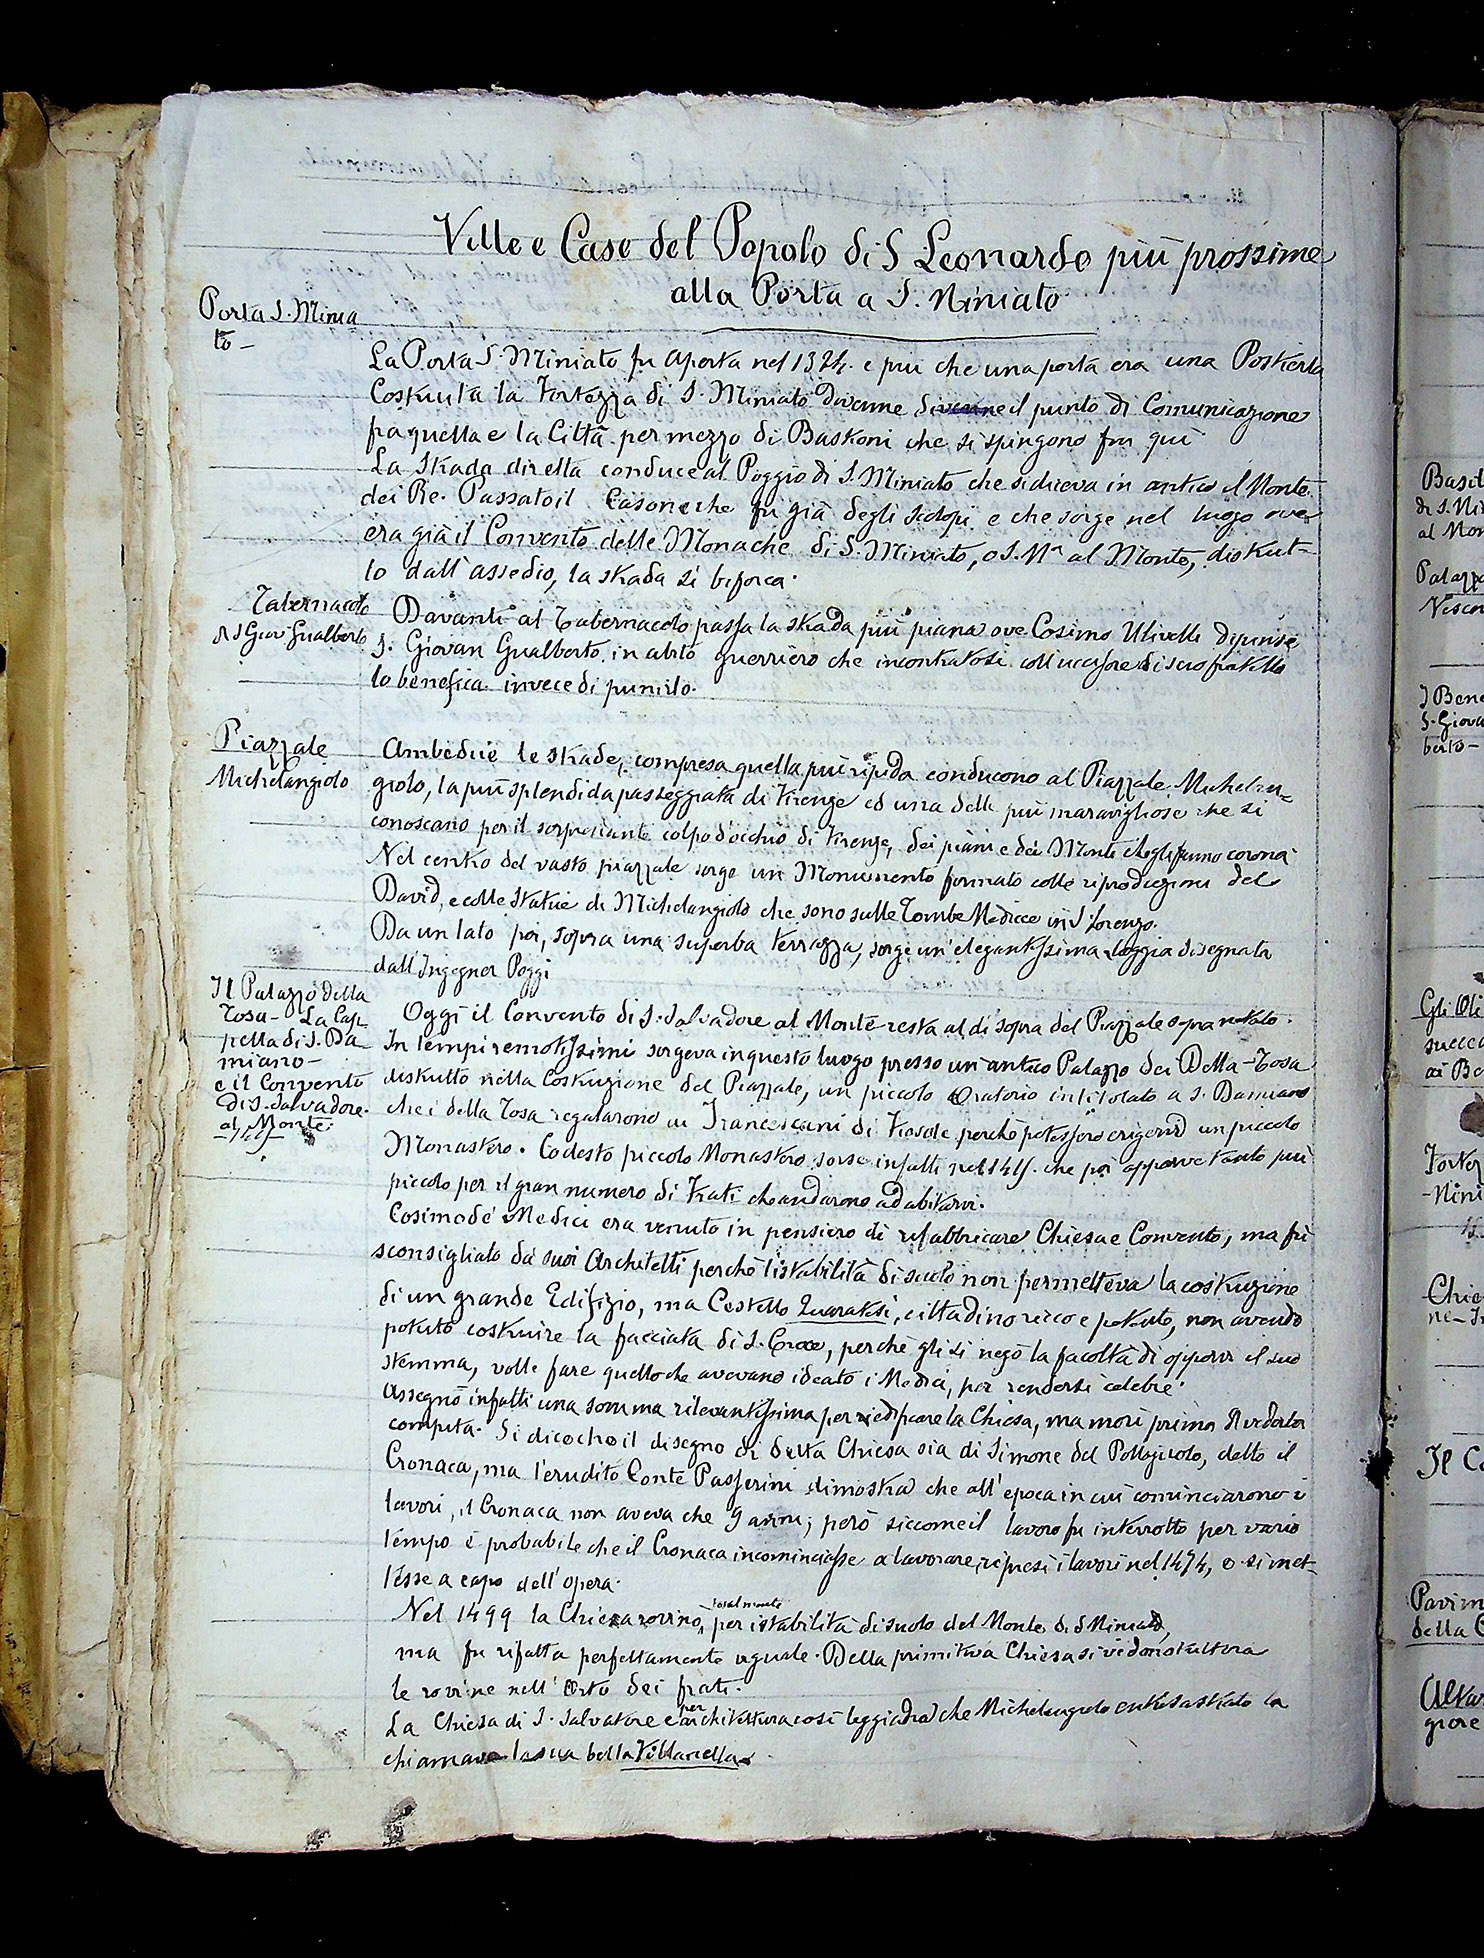 Ville e Case del Popolo di S Leonardo più prossime
alla Porta a S. Miniato
Porta S. Minia
to -
La Porta S. Miniato fu aperta nel 1324. e più che una porta era una Postierla
Costruita la Fortezza di S. Miniato divenne divenne il punto di Comunicazione
fra quella e la Città per mezzo di Bastioni che si spingono fin qui
La strada diretta conduce al Poggio di S. Miniato che si diceva in antico il Monte
dei Re. Passato il Casone che fu già degli Scolopi e che sorge nel luogo ove
era già il Convento delle Monache di S. Miniato, o S. Ma al Monte, distrut-
to dall'assedio, la strada si biforca.
Tabernacolo
di S Giov Gualberto
Davanti al Tabernacolo passa la strada più piana ove Cosimo Ulivelli dipinse
S. Giovan Gualberto in abito guerriero che incontratosi coll'uccisore di suo fratello
lo benefica invece di punirlo.
Piazzale
Michelangiolo
Ambedue le strade, compresa quella più ripida conducono al Piazzale Michelan-
giolo, la più splendida passeggiata di Firenze ed una delle più maravigliose che si
conoscano per il sorprendente colpo d'occhio di Firenze, dei piani e dei Monti che gli fanno corona
Nel centro del vasto piazzale sorge un Monumento formato colle riproduzioni del
David, e colle statue di Michelangiolo che sono sulle Tombe Medicee in S Lorenzo.
Da un lato poi, sopra una superba terrazza, sorge un'elegantissima loggia disegnata
dall'Ingegner Poggi
Il Palazzo della
Tosa - La Cap
pella di S. Da-
miano -
e il Convento
di S. Salvadore
al Monte
Oggi il Convento di S. Salvadore al Monte resta al di sopra del Piazzale sopra notato.
In tempi remotissimi sorgeva in questo luogo presso un antico Palazzo dei Della-Tosa
distrutto nella Costruzione del Piazzale, un piccolo Oratorio intitolato a S. Damiano
che i della Tosa regalarono ai Francescani di Fiesole perché potessero erigervi un piccolo
Monastero. Codesto piccolo Monastero sorse infatti nel che poi apparve tanto più
piccolo per il gran numero di Frati che andarono ad abitarvi.
Cosimo de' Medici era venuto in pensiero di rifabbricare Chiesa e Convento, ma fu
sconsigliato da' suoi Architetti perché l'istabilità di suolo non permetteva la costruzione
di un grande Edifizio, ma Castello Quaratesi, cittadino ricco e potente, non avendo
potuto costruire la facciata di S. Croce, perché gli si negò la facoltà di apporvi il suo
stemma, volle fare quello che avevano ideato i Medici, per rendersi celebre.
Assegnò infatti una somma rilevantissima per riedificare la Chiesa, ma morì prima di vederla
compita. Si dice che il disegno di detta Chiesa sia di Simone del Pollajuolo, detto il
Cronaca, ma l'erudito Conte Passerini dimostra che all'epoca in cui cominciarono i
lavori, il Cronaca non aveva che 9 anni; però siccome il lavoro fu interrotto per vario
tempo è probabile che il Cronaca incominciasse a lavorare, ripresi i lavori nel 1474, o si met-
tesse a capo dell'opera.
Nel 1499 la Chiesa rovinò totalmente per istabilità di suolo del Monte di S Miniato,
ma fu rifatta perfettamente uguale. Della primitiva Chiesa si vedono tuttora
le rovine nell'Orto dei frati.
La Chiesa di S. Salvatore è per architettura così leggiadra che Michelangiolo entusiastato la
chiamava la sua bella Villanella.
Basil
di S. Mi
al Mon
Palazzo
Vescov
I Bene
S. Giova
berto -
Gli Oli
succe
ai Be
Fortez
- Mini
Chie
ne -
Il C
Pavim
della C
Altar
giore